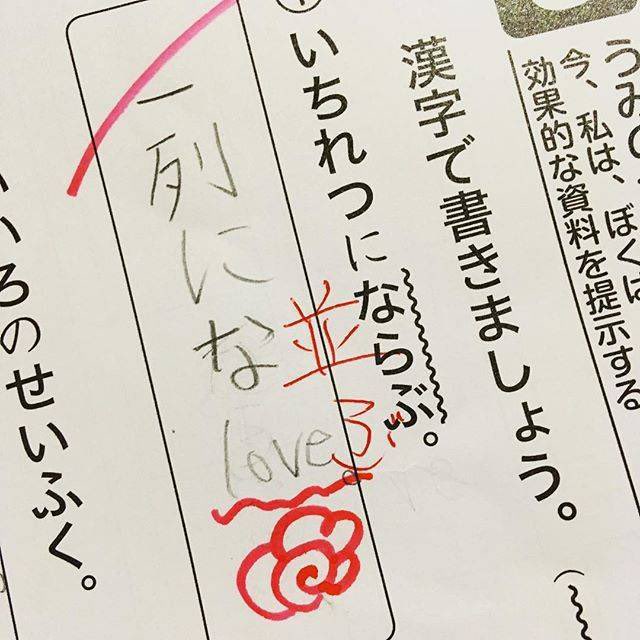 うみの
今、私は、ぼくは
効果的な資料を提示する
漢字で書きましょう。
① いちれつにならぶ。
一列にな
love。
並ぶ
いろのせいふく。